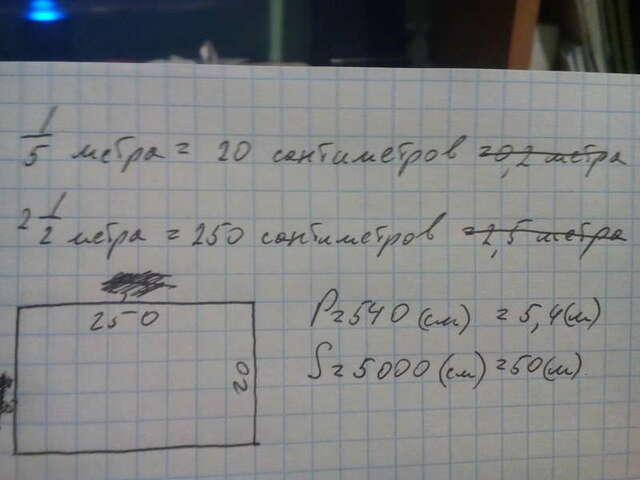 1/5 метра = 20 сантиметров = 0,2 метра
2 1/2 метра = 250 сантиметров = 2,5 метра
250
20
P = 540 (см) = 5,4 (м)
S = 5000 (см) = 50 (м)